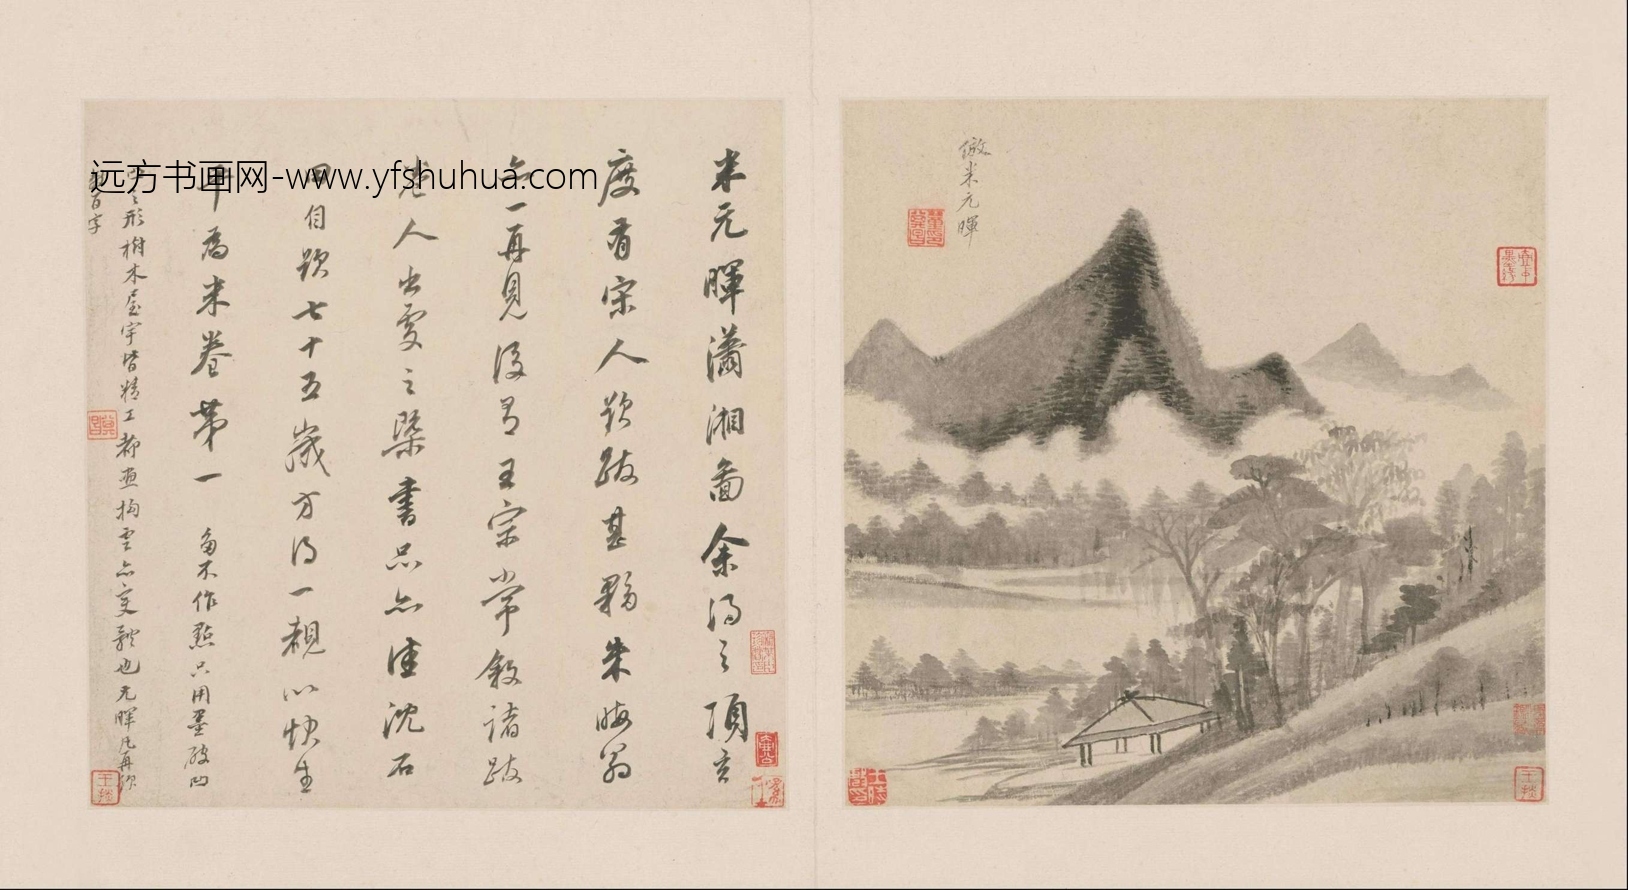 倣米元暉
米元暉瀟湘圖余得之項玄
度有宋人題跋甚夥朱晦翁
亦一再見後有王宗常敘諸跋
老人出處之槩書品亦佳沈石
田自題七十五歲方得一覩以快生
平為米卷第一 多不作點只用墨破凹
凸之形樹木屋宇皆精工都畫抅雲亦變體也元暉凡再題
數百字
远方书画网-www.yfshuhua.com